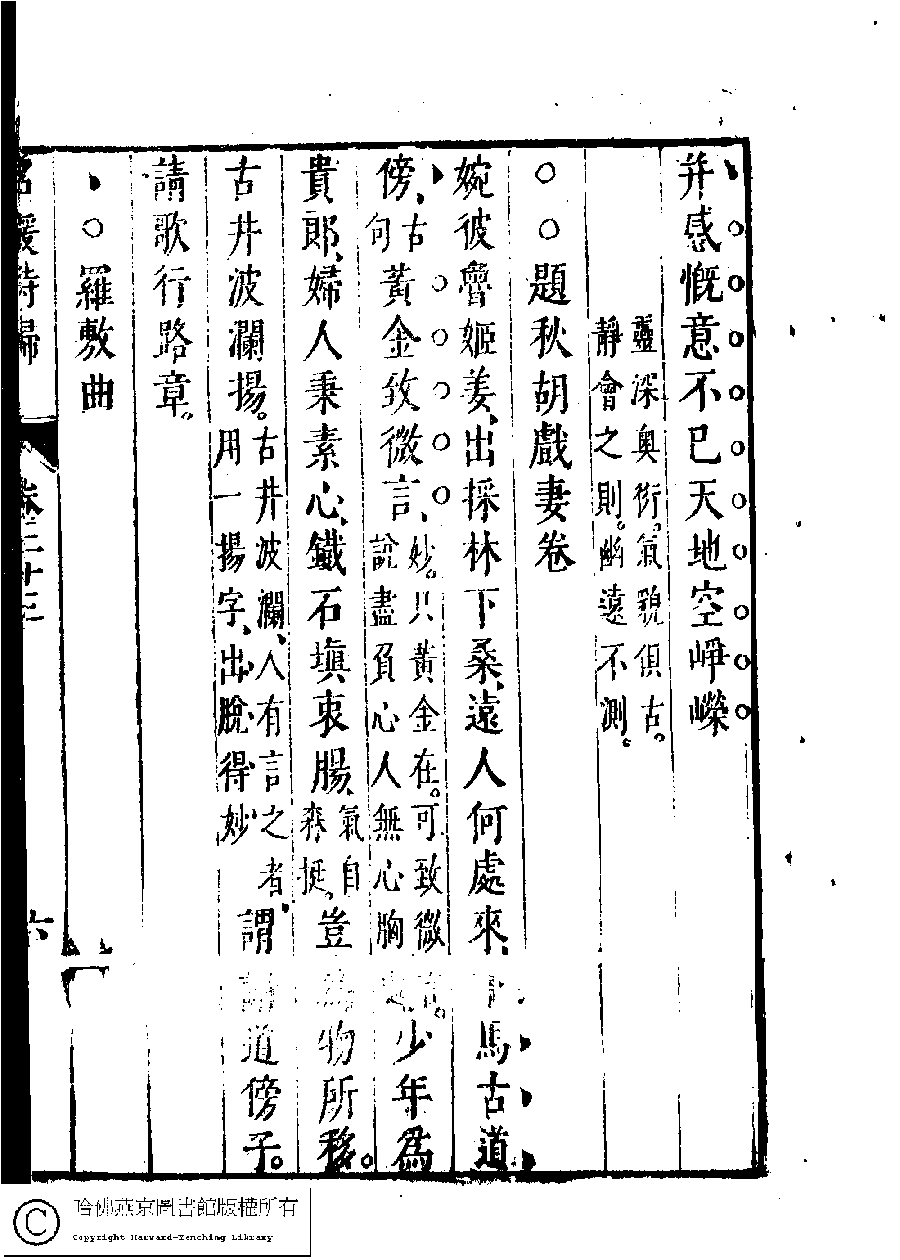 并感慨意不已天地空崢嶸
靈深奧衍。氣貌俱古。
靜會之則。幽遠不測。
○○題秋胡戲妻卷
婉彼魯姬姜、出採林下桑、遠人何處來、馬古道
傍、古句黃金致微言、妙。只黃金在。可致微說盡負心人無心胸少年為
貴郎、婦人秉素心、鐵石塡衷腸、氣自森挺、豈物所移。
古井波瀾揚。古井波瀾、人有言之者、用一揚字、出脫得妙謂道傍子。
請歌行路章。
○羅敷曲
名媛詩歸
卷三十三
六
哈佛燕京圖書館版權所有
Copyright Harvard-Yenching Library